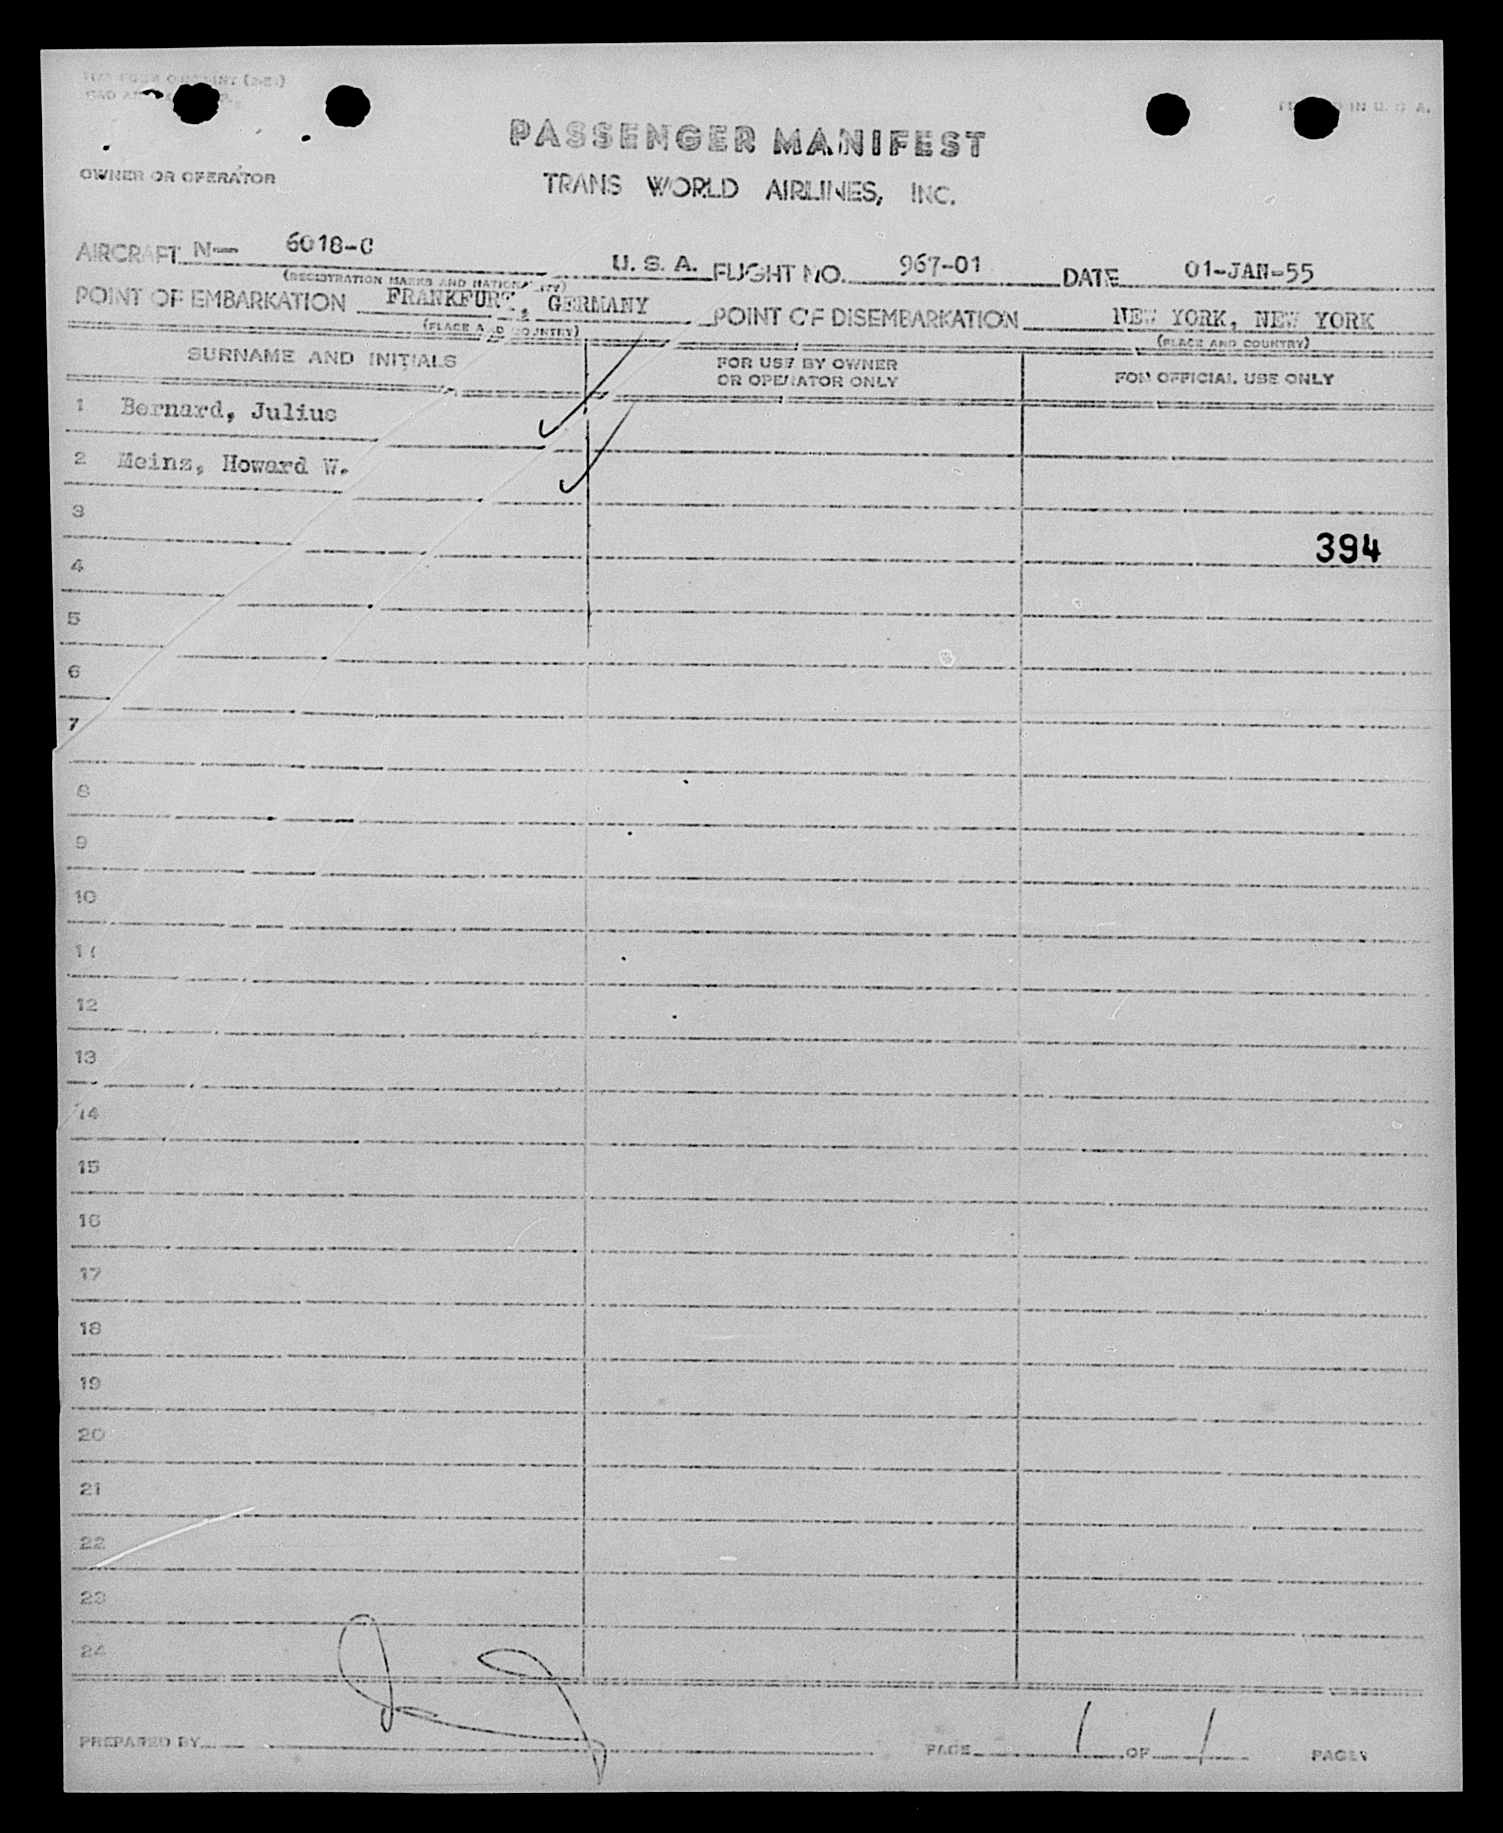 PASSENGER MANIFEST
OWNER OR OPERATOR
TRANS WORLD AIRLINES, INC.
AIRCRAFT N— 6018-C U. S. A. FLIGHT NO. 967-01 DATE 01-JAN-55
(REGISTRATION MARKS AND NATIONALITY)
POINT OF EMBARKATION FRANKFURT, GERMANY POINT OF DISEMBARKATION NEW YORK, NEW YORK
(PLACE AND COUNTRY) (PLACE AND COUNTRY)
SURNAME AND INITIALS FOR USE BY OWNER OR OPERATOR ONLY FOR OFFICIAL USE ONLY
1 Bernard, Julius
2 Meins, Howard W.
3
394
4
5
6
7
8
9
10
11
12
13
14
15
16
17
18
19
20
21
22
23
24
PREPARED BY PAGE 1 OF 1 PAGES